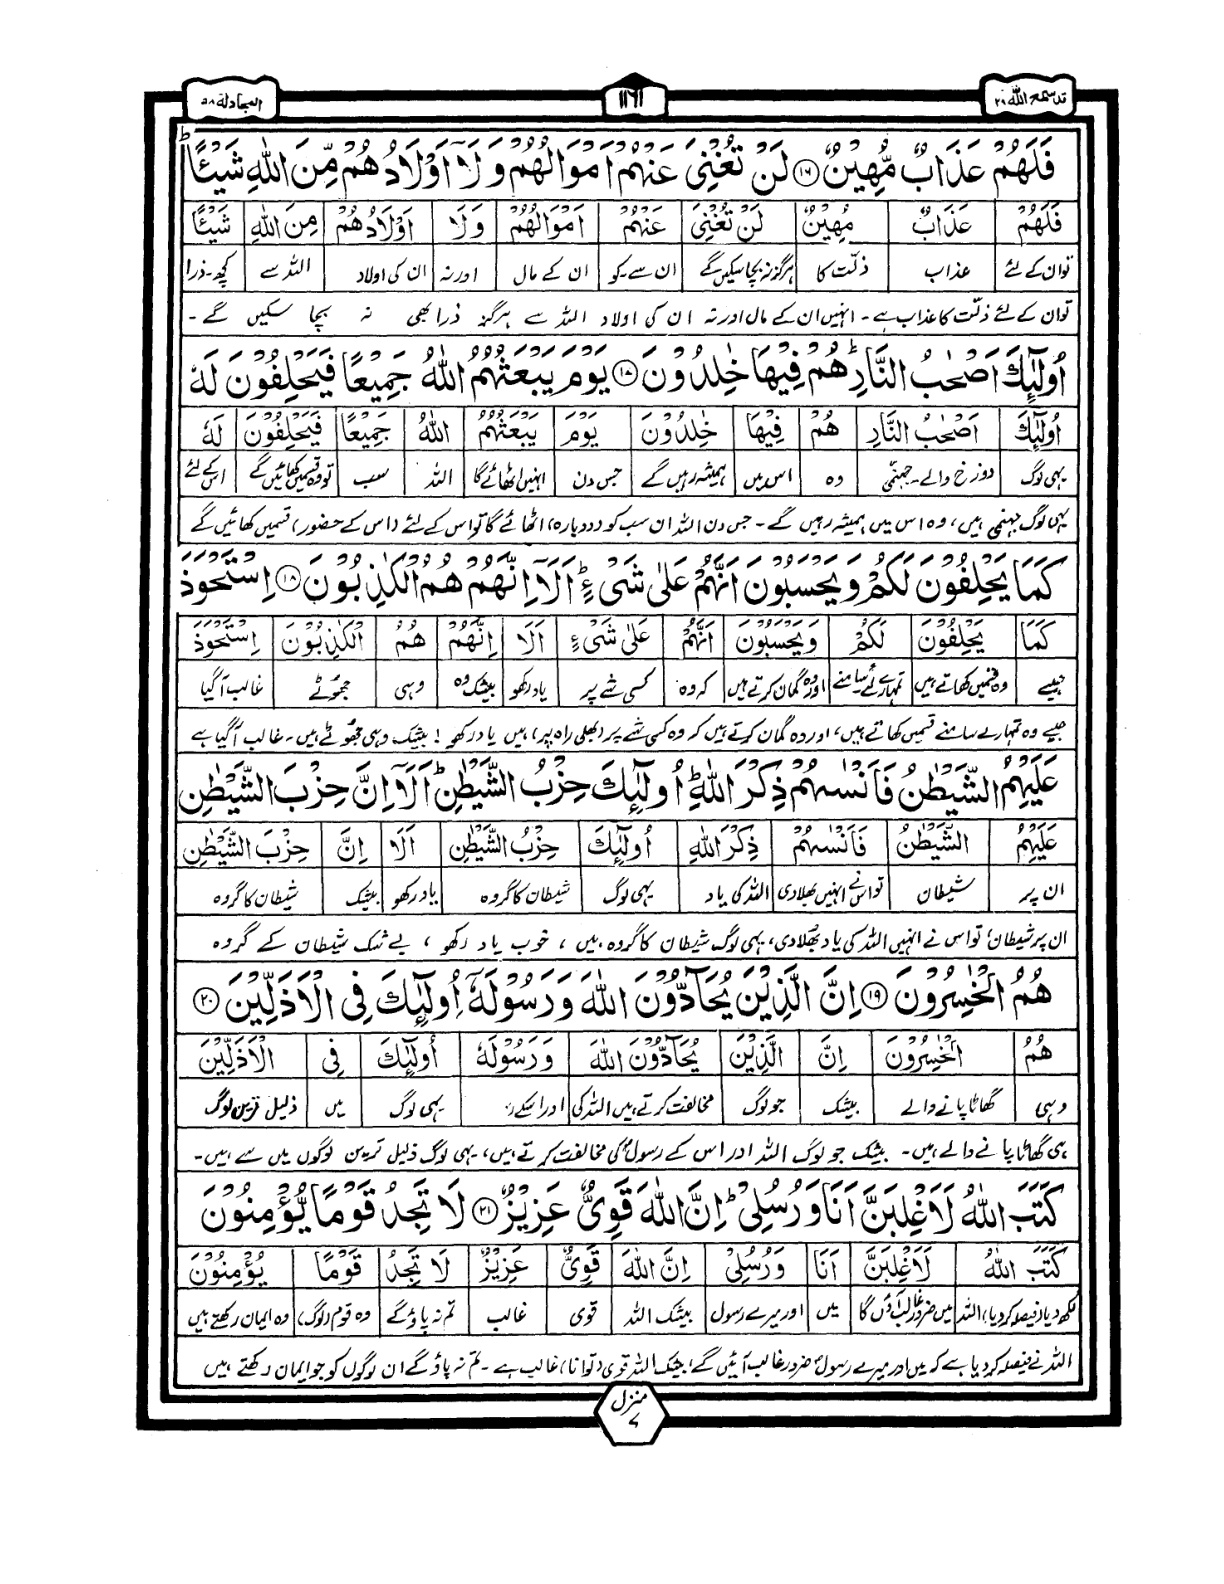 قد سمع الله ۲۸ ۱۱۶۱ المجادلة ۵۸
فَلَهُمْ عَذَابٌ مُّهِيْنٌ ۱۶ لَنْ تُغْنِيَ عَنْهُمْ اَمْوَالُهُمْ وَلَآ اَوْلَادُهُمْ مِّنَ اللّٰهِ شَيْـًٔا ؕ
فَلَهُمْ عَذَابٌ مُّهِيْنٌ لَنْ تُغْنِيَ عَنْهُمْ اَمْوَالُهُمْ وَلَا اَوْلَادُهُمْ مِنَ اللّٰهِ شَيْـًٔا
تو ان کے لئے عذاب ذلّت کا ہرگز نہ بچا سکیں گے ان سے۔ کو ان کے مال اور نہ ان کی اولاد اللہ سے کچھ۔ ذرا
تو ان کے لئے ذلّت کا عذاب ہے۔ انہیں ان کے مال اور نہ ان کی اولاد اللہ سے ہرگز ذرا بھی نہ بچا سکیں گے۔
اُولٰٓئِكَ اَصْحٰبُ النَّارِ ؕ هُمْ فِيْهَا خٰلِدُوْنَ ۱۷ يَوْمَ يَبْعَثُهُمُ اللّٰهُ جَمِيْعًا فَيَحْلِفُوْنَ لَهٗ
اُولٰٓئِكَ اَصْحٰبُ النَّارِ هُمْ فِيْهَا خٰلِدُوْنَ يَوْمَ يَبْعَثُهُمُ اللّٰهُ جَمِيْعًا فَيَحْلِفُوْنَ لَهٗ
یہی لوگ دوزخ والے۔ جہنمی وہ اس میں ہمیشہ رہیں گے جس دن انہیں اٹھائے گا اللہ سب تو وہ قسمیں کھائیں گے اس کے لئے
یہی لوگ جہنمی ہیں، وہ اس میں ہمیشہ رہیں گے۔ جس دن اللہ ان سب کو (دوبارہ) اٹھائے گا تو اس کے لئے (اس کے حضور) قسمیں کھائیں گے
كَمَا يَحْلِفُوْنَ لَكُمْ وَيَحْسَبُوْنَ اَنَّهُمْ عَلٰى شَيْءٍ ؕ اَلَآ اِنَّهُمْ هُمُ الْكٰذِبُوْنَ ۱۸ اِسْتَحْوَذَ
كَمَا يَحْلِفُوْنَ لَكُمْ وَيَحْسَبُوْنَ اَنَّهُمْ عَلٰى شَيْءٍ اَلَا اِنَّهُمْ هُمُ الْكٰذِبُوْنَ اِسْتَحْوَذَ
جیسے وہ قسمیں کھاتے ہیں تمہارے لئے۔ سامنے اور وہ گمان کرتے ہیں کہ وہ کسی شے پر یاد رکھو بیشک وہ وہی جھوٹے غالب آگیا
جیسے وہ تمہارے سامنے قسمیں کھاتے ہیں، اور وہ گمان کرتے ہیں کہ وہ کسی شے پر (بھلی راہ پر) ہیں یاد رکھو! بیشک وہی جھوٹے ہیں۔ غالب آگیا ہے
عَلَيْهِمُ الشَّيْطٰنُ فَاَنْسٰىهُمْ ذِكْرَ اللّٰهِ ؕ اُولٰٓئِكَ حِزْبُ الشَّيْطٰنِ ؕ اَلَآ اِنَّ حِزْبَ الشَّيْطٰنِ
عَلَيْهِمُ الشَّيْطٰنُ فَاَنْسٰىهُمْ ذِكْرَ اللّٰهِ اُولٰٓئِكَ حِزْبُ الشَّيْطٰنِ اَلَا اِنَّ حِزْبَ الشَّيْطٰنِ
ان پر شیطان تو اس نے انہیں بھلا دی اللہ کی یاد یہی لوگ شیطان کا گروہ یاد رکھو بیشک شیطان کا گروہ
ان پر شیطان، تو اس نے انہیں اللہ کی یاد بھلا دی، یہی لوگ شیطان کا گروہ ہیں ، خوب یاد رکھو ، بے شک شیطان کے گروہ
هُمُ الْخٰسِرُوْنَ ۱۹ اِنَّ الَّذِيْنَ يُحَآدُّوْنَ اللّٰهَ وَرَسُوْلَهٗٓ اُولٰٓئِكَ فِي الْاَذَلِّيْنَ ۲۰
هُمُ الْخٰسِرُوْنَ اِنَّ الَّذِيْنَ يُحَآدُّوْنَ اللّٰهَ وَرَسُوْلَهٗ اُولٰٓئِكَ فِي الْاَذَلِّيْنَ
وہی گھاٹا پانے والے بیشک جو لوگ مخالفت کرتے ہیں اللہ کی اور اسکے یہی لوگ میں ذلیل ترین لوگ
ہی گھاٹا پانے والے ہیں۔ بیشک جو لوگ اللہ اور اس کے رسول کی مخالفت کرتے ہیں، یہی لوگ ذلیل ترین لوگوں میں سے ہیں۔
كَتَبَ اللّٰهُ لَاَغْلِبَنَّ اَنَا وَرُسُلِيْ ؕ اِنَّ اللّٰهَ قَوِيٌّ عَزِيْزٌ ۲۱ لَا تَجِدُ قَوْمًا يُّؤْمِنُوْنَ
كَتَبَ اللّٰهُ لَاَغْلِبَنَّ اَنَا وَرُسُلِيْ اِنَّ اللّٰهَ قَوِيٌّ عَزِيْزٌ لَا تَجِدُ قَوْمًا يُؤْمِنُوْنَ
لکھ دیا (فیصلہ کر دیا) اللہ میں ضرور غالب آؤں گا میں اور میرے رسول بیشک اللہ قوی غالب تم نہ پاؤ گے وہ قوم (لوگ) وہ ایمان رکھتے ہیں
اللہ نے فیصلہ کر دیا ہے کہ میں اور میرے رسول ضرور غالب آئیں گے، بیشک اللہ قوی (توانا) غالب ہے۔ تم نہ پاؤ گے ان لوگوں کو جو ایمان رکھتے ہیں
منزل ۷